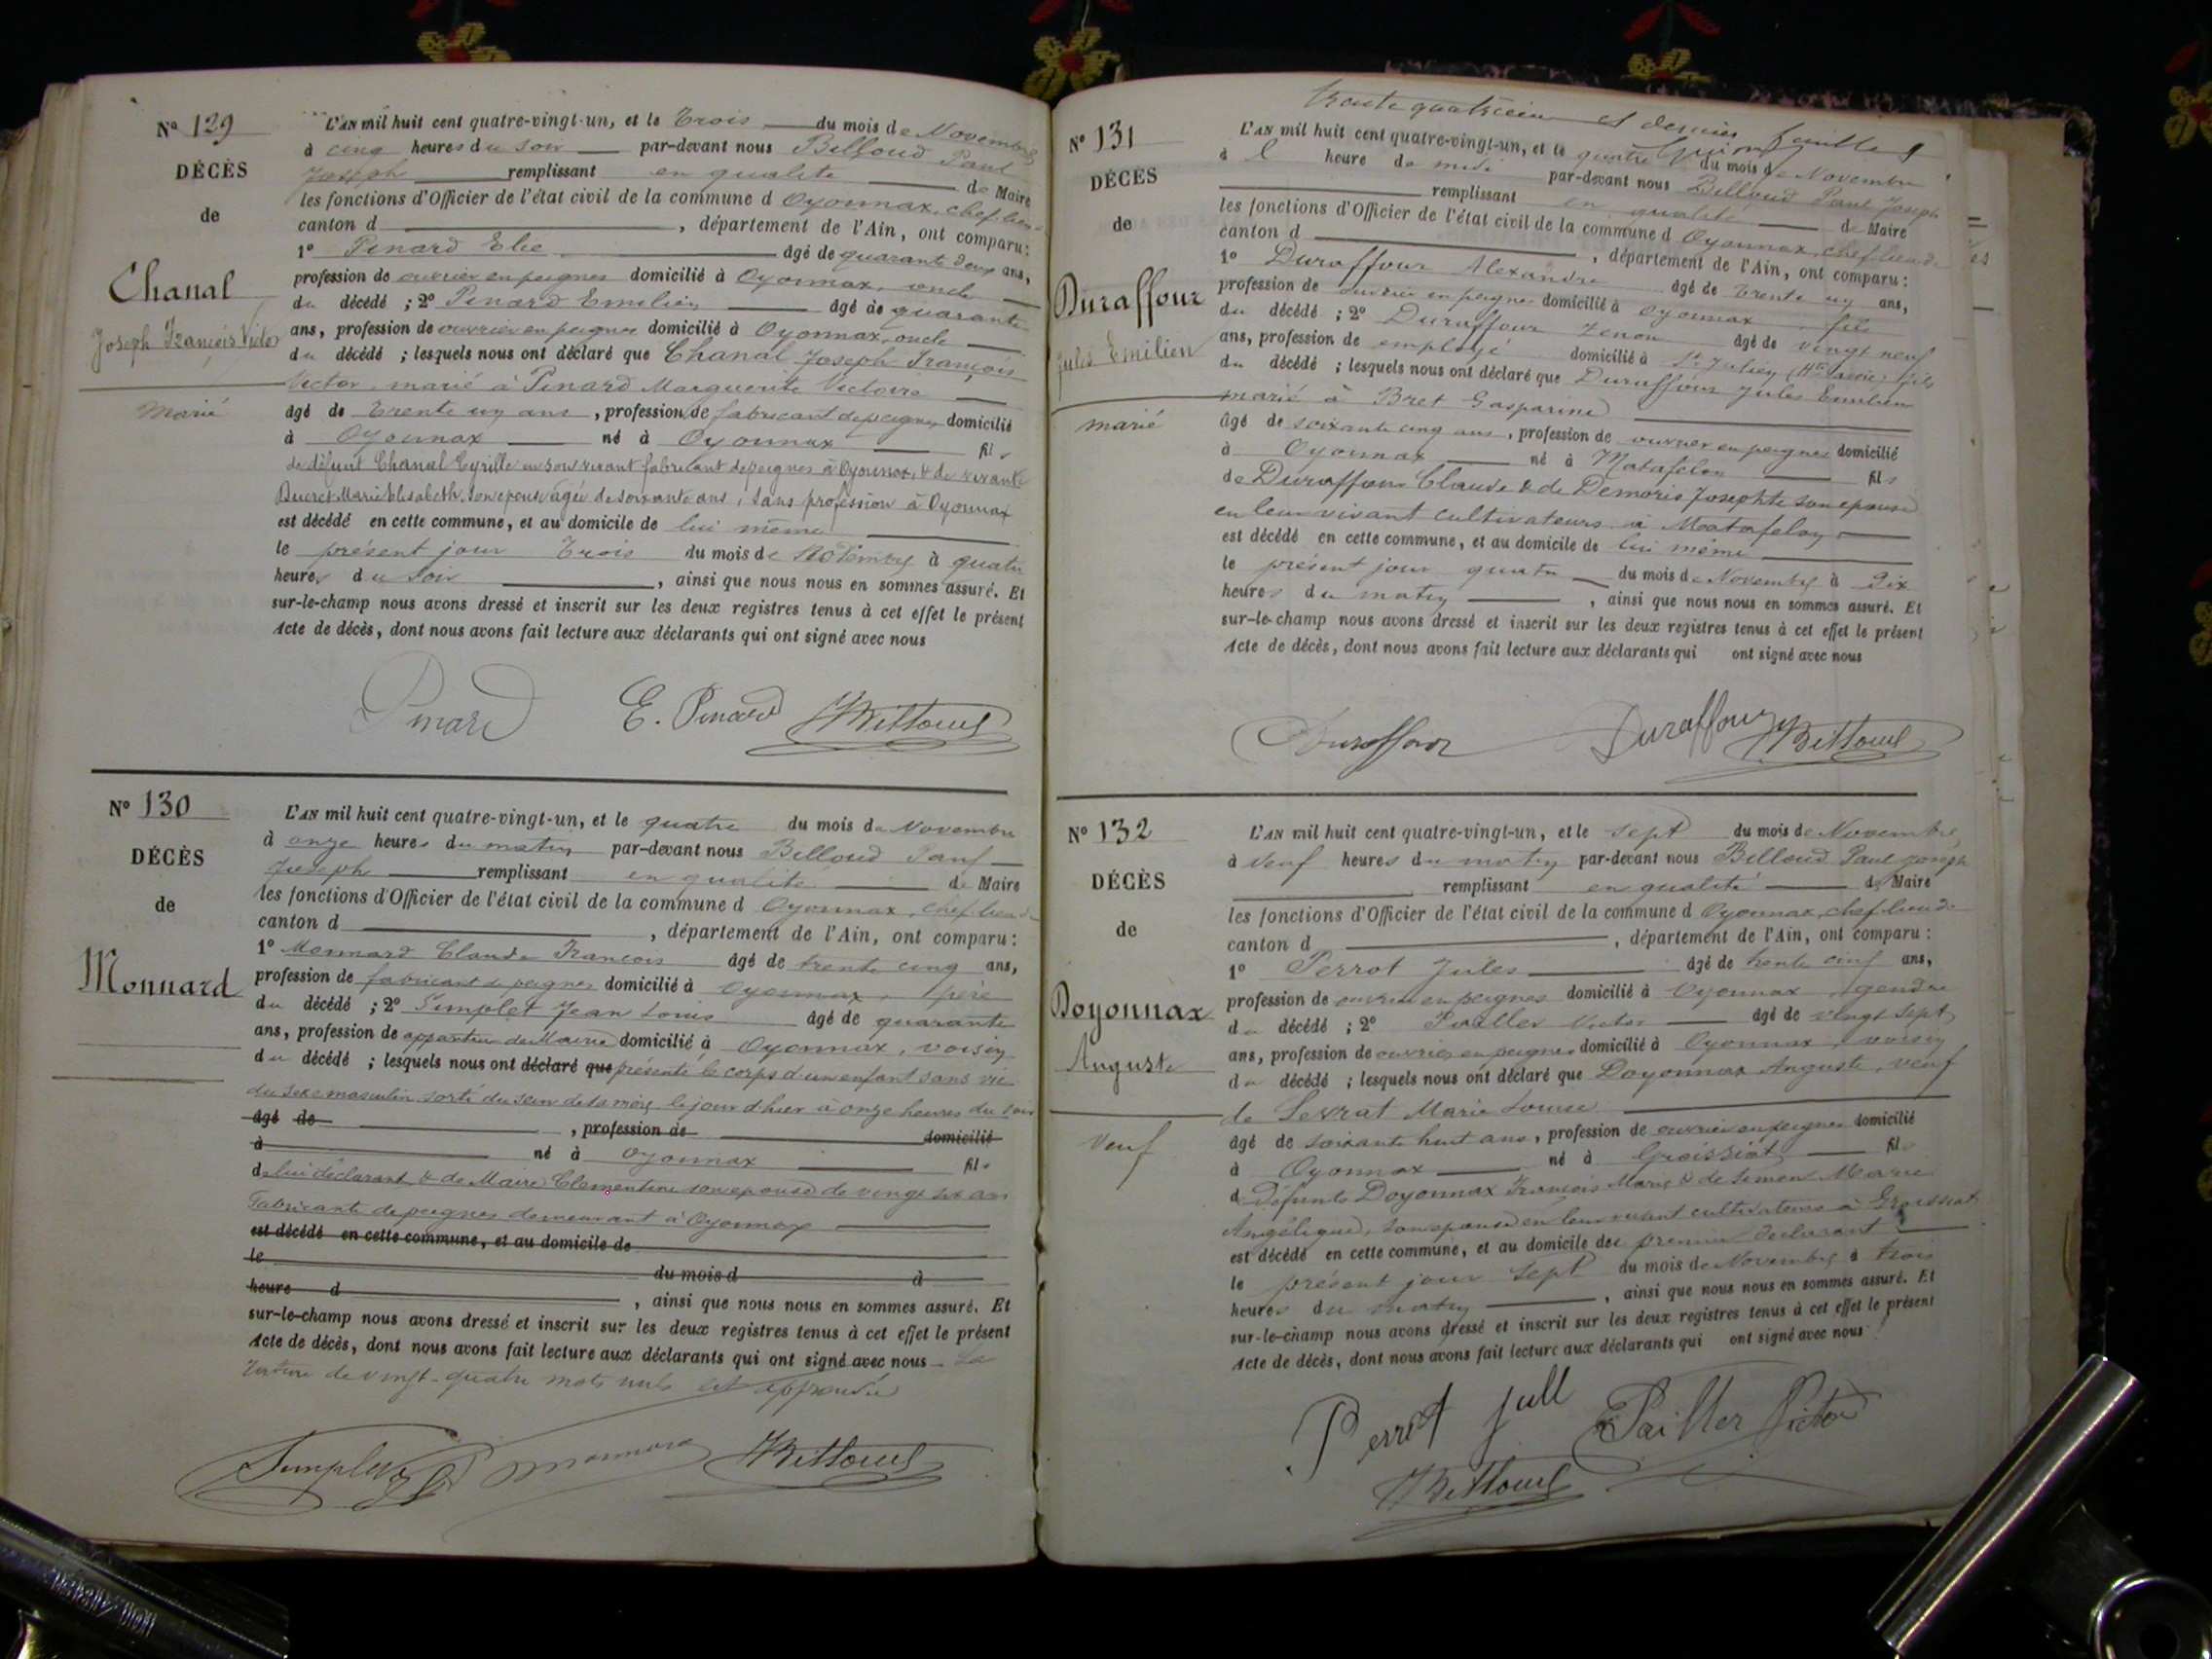 Nº 129
DÉCÈS
de
Chanal
Joseph François Victor
marié
L'AN mil huit cent quatre-vingt-un, et le trois du mois de Novembre
à cinq heures du soir par-devant nous Billoud Paul
Joseph remplissant en qualité de Maire
les fonctions d'Officier de l'état civil de la commune d Oyonnax, chef lieu
canton d , département de l'Ain, ont comparu :
1º Pinard Elie âgé de quarante deux ans,
profession de ouvrier en peignes domicilié à Oyonnax, oncle
du décédé ; 2º Pinard Emilien âgé de quarante
ans, profession de ouvrier en peignes domicilié à Oyonnax, oncle
du décédé ; lesquels nous ont déclaré que Chanal Joseph François
Victor, marié à Pinard Marguerite Victoire
âgé de trente un ans, profession de fabricant de peignes domicilié
à Oyonnax né à Oyonnax fils
de défunt Chanal Cyrille en son vivant fabricant de peignes à Oyonnax, & de vivante
Ducret Marie Elisabeth, son épouse âgée de soixante ans, sans profession à Oyonnax
est décédé en cette commune, et au domicile de lui même
le présent jour trois du mois de Novembre à quatre
heures du soir , ainsi que nous nous en sommes assuré. Et
sur-le-champ nous avons dressé et inscrit sur les deux registres tenus à cet effet le présent
Acte de décès, dont nous avons fait lecture aux déclarants qui ont signé avec nous
Pinard E. Pinard Billoud
Nº 130
DÉCÈS
de
Monnard
L'AN mil huit cent quatre-vingt-un, et le quatre du mois de Novembre
à onze heures du matin par-devant nous Billoud Paul
Joseph remplissant en qualité de Maire
les fonctions d'Officier de l'état civil de la commune d Oyonnax, chef lieu de
canton d , département de l'Ain, ont comparu :
1º Monnard Claude François âgé de trente cinq ans,
profession de fabricant de peignes domicilié à Oyonnax, père
du décédé ; 2º Simplet Jean Louis âgé de quarante
ans, profession de appariteur de Mairie domicilié à Oyonnax, voisin
du décédé ; lesquels nous ont déclaré que présenté le corps d'un enfant sans vie
du sexe masculin sorti du sein de sa mère le jour d'hier à onze heures du soir
âgé de , profession de domicilié
à né à Oyonnax fils
de lui déclarant & de Maire Clementine son épouse de vingt six ans
fabricante de peignes demeurant à Oyonnax
est décédé en cette commune, et au domicile de
le du mois d à
heure d , ainsi que nous nous en sommes assuré. Et
sur-le-champ nous avons dressé et inscrit sur les deux registres tenus à cet effet le présent
Acte de décès, dont nous avons fait lecture aux déclarants qui ont signé avec nous La
rature de vingt-quatre mots nuls est approuvée
Simplet Monnard Billoud
trente quatrième et dernier feuillet
Nº 131
DÉCÈS
de
Duraffour
Jules Emilien
marié
L'AN mil huit cent quatre-vingt-un, et le quatre du mois de Novembre
à l heure de midi par-devant nous Billoud Paul Joseph
remplissant en qualité de Maire
les fonctions d'Officier de l'état civil de la commune d Oyonnax, chef lieu de
canton d , département de l'Ain, ont comparu :
1º Duraffour Alexandre âgé de trente un ans,
profession de ouvrier en peignes domicilié à Oyonnax fils
du décédé ; 2º Duraffour Zenon âgé de vingt neuf
ans, profession de employé domicilié à St Julien (Hte Savoie) fils
du décédé ; lesquels nous ont déclaré que Duraffour Jules Emilien
marié à Bret Gasparine
âgé de soixante cinq ans, profession de ouvrier en peignes domicilié
à Oyonnax né à Matafelon fils
de Duraffour Claude & de Demoris Josephte son épouse
en leur vivant cultivateurs à Matafelon
est décédé en cette commune, et au domicile de lui même
le présent jour quatre du mois de Novembre à dix
heures du matin , ainsi que nous nous en sommes assuré. Et
sur-le-champ nous avons dressé et inscrit sur les deux registres tenus à cet effet le présent
Acte de décès, dont nous avons fait lecture aux déclarants qui ont signé avec nous
Duraffour Duraffour Billoud
Nº 132
DÉCÈS
de
Doyonnax
Auguste
Veuf
L'AN mil huit cent quatre-vingt-un, et le sept du mois de Novembre
à neuf heures du matin par-devant nous Billoud Paul Joseph
remplissant en qualité de Maire
les fonctions d'Officier de l'état civil de la commune d Oyonnax, chef lieu de
canton d , département de l'Ain, ont comparu :
1º Perrot Jules âgé de trente cinq ans,
profession de ouvrier en peignes domicilié à Oyonnax, gendre
du décédé ; 2º Pailler Victor âgé de vingt sept
ans, profession de ouvrier en peignes domicilié à Oyonnax, voisin
du décédé ; lesquels nous ont déclaré que Doyonnax Auguste, veuf
de Levrat Marie Louise
âgé de soixante huit ans, profession de ouvrier en peignes domicilié
à Oyonnax né à Groissiat fils
d défunts Doyonnax François Marie & de Marie
Angélique, son épouse en leur vivant cultivateurs à Groissiat
est décédé en cette commune, et au domicile de premier déclarant
le présent jour sept du mois de Novembre à trois
heures du matin , ainsi que nous nous en sommes assuré. Et
sur-le-champ nous avons dressé et inscrit sur les deux registres tenus à cet effet le présent
Acte de décès, dont nous avons fait lecture aux déclarants qui ont signé avec nous
Perrot Jull Pailler Victor
Billoud